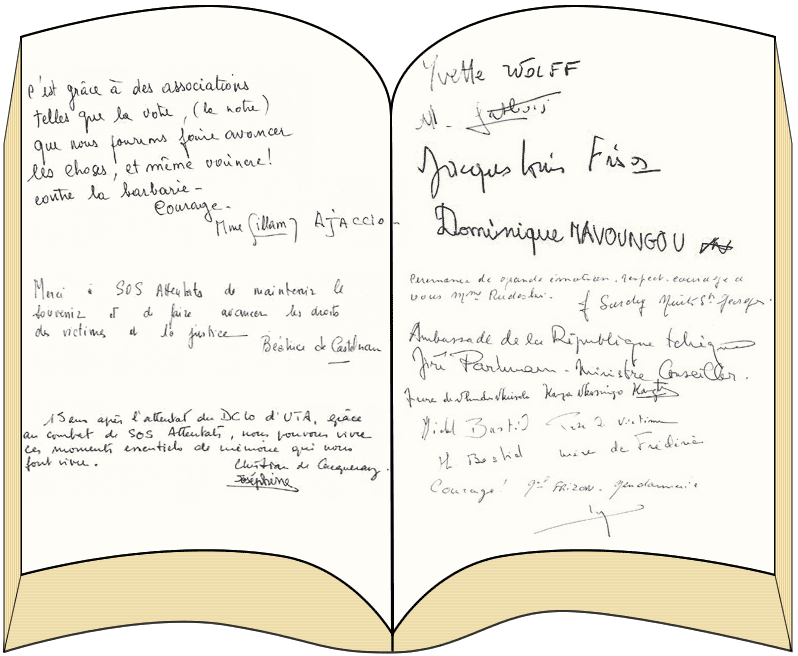 C'est grâce à des associations
telles que la votre, (la notre)
que nous pourrons faire avancer
les choses, et même vaincre!
contre la barbarie -
Courage.
Mme Gillam AJACCIO -
Merci à SOS Attentats de maintenir le
souvenir et de faire avancer les droits
des victimes et la justice
Béatrice de Castelnau
15 ans après l'attentat du DC10 d'UTA, grâce
au combat de SOS Attentats, nous pouvons vivre
ces moments essentiels de mémoire qui nous
font vivre.
Christian de Cacqueray.
Joséphine
Yvette WOLFF
M.
Jacques Louis
Dominique MAVOUNGOU
Ceremonie de grande émotion. respect. courage a
vous Mme Rudetski.
Ambassade de la République tchèque
Jiří - Ministre Conseiller.
Michel Bastid Père 2 victimes
M Bastid mère de Frédéric
Courage! FRIZON. gendarmerie